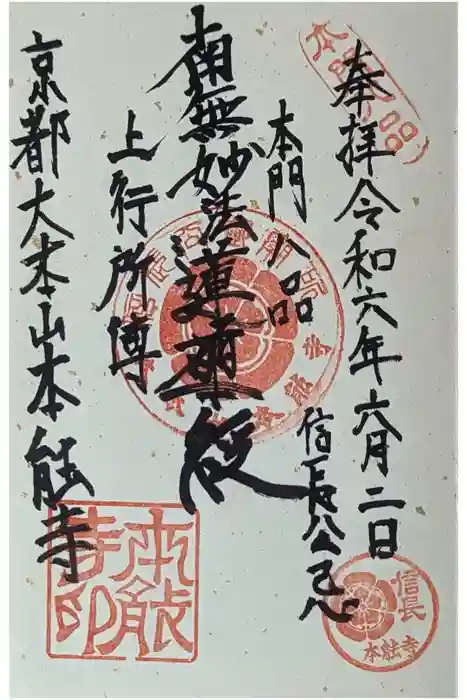 奉拝令和六年六月二日
信長公忌
本門八品
南無妙法蓮華経
上行所傳
京都大本山本能寺
本門八品
信長
本能寺
本能寺印